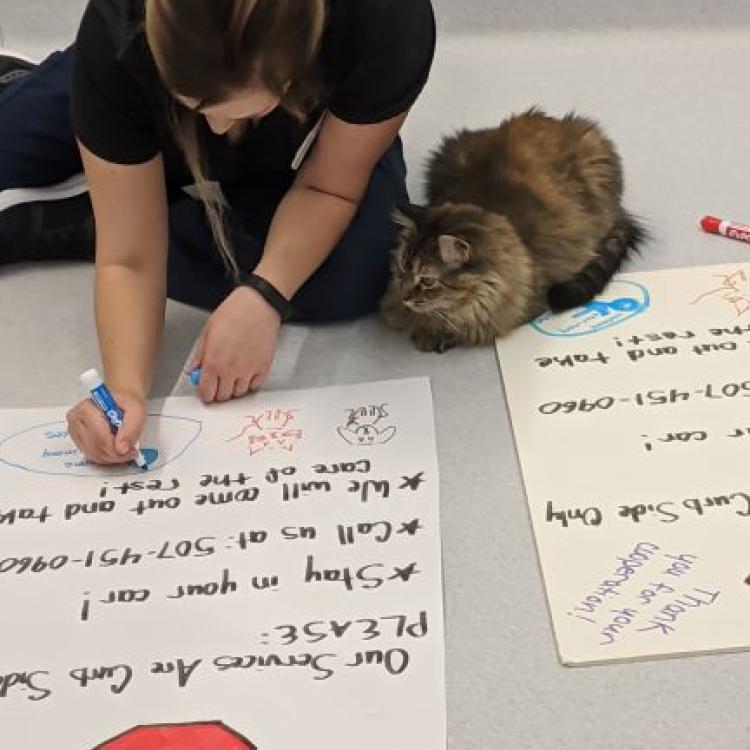 Our Services Are Curb Side
PLEASE:
*Stay in your car!
*Call us at: 507-451-0960
*We will come out and take
care of the rest!
Thank
you for your
cooperation!
Curb Side Only
car!
507-451-0960
out and take
the rest!
EXPO